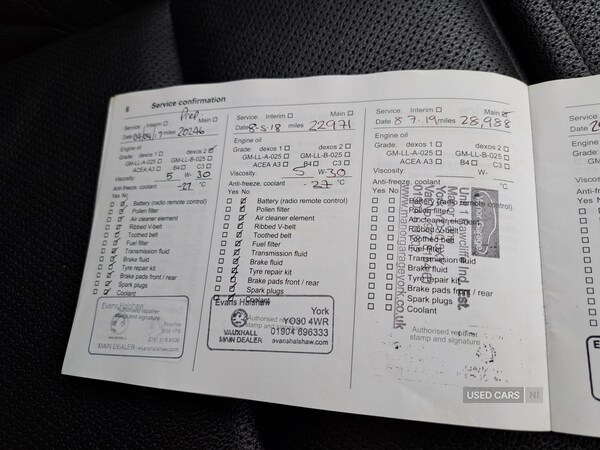 6 Service confirmation
Prep
Service: Interim Main
Date miles 20246
Engine oil
Grade: dexos 1 dexos 2
GM-LL-A-025 GM-LL-B-025
ACEA A3 B4 C3
Viscosity: 5 W- 30
Anti-freeze, coolant -27 °C
Yes No
Battery (radio remote control)
Pollen filter
Air cleaner element
Ribbed V-belt
Toothed belt
Fuel filter
Transmission fluid
Brake fluid
Tyre repair kit
Brake pads front / rear
Spark plugs
Coolant
Evans Halshaw
Authorised repairer
stamp and signature
MAIN DEALER
Service: Interim Main
Date 8-5-18 miles 22971
Engine oil
Grade: dexos 1 dexos 2
GM-LL-A-025 GM-LL-B-025
ACEA A3 B4 C3
Viscosity: 5 W-30
Anti-freeze, coolant -27 °C
Yes No
Battery (radio remote control)
Pollen filter
Air cleaner element
Ribbed V-belt
Toothed belt
Fuel filter
Transmission fluid
Brake fluid
Tyre repair kit
Brake pads front / rear
Spark plugs
Coolant
Evans Halshaw
York
YO30 4WR
01904 696333
Authorised repairer
stamp and signature
VAUXHALL
MAIN DEALER evanshalshaw.com
Service: Interim Main
Date 8 7.19 miles 28,988
Engine oil
Grade: dexos 1 dexos 2
GM-LL-A-025 GM-LL-B-025
ACEA A3 B4 C3
Viscosity: W-
Anti-freeze, coolant °C
Yes No
Battery (radio remote control)
Pollen filter
Air cleaner element
Ribbed V-belt
Toothed belt
Fuel filter
Transmission fluid
Brake fluid
Tyre repair kit
Brake pads front / rear
Spark plugs
Coolant
Authorised repairer
stamp and signature
Ind. Est.
Service:
Date
Engine oil
Grade:
Viscosity:
Anti-freeze
Yes No
USED CARS NI